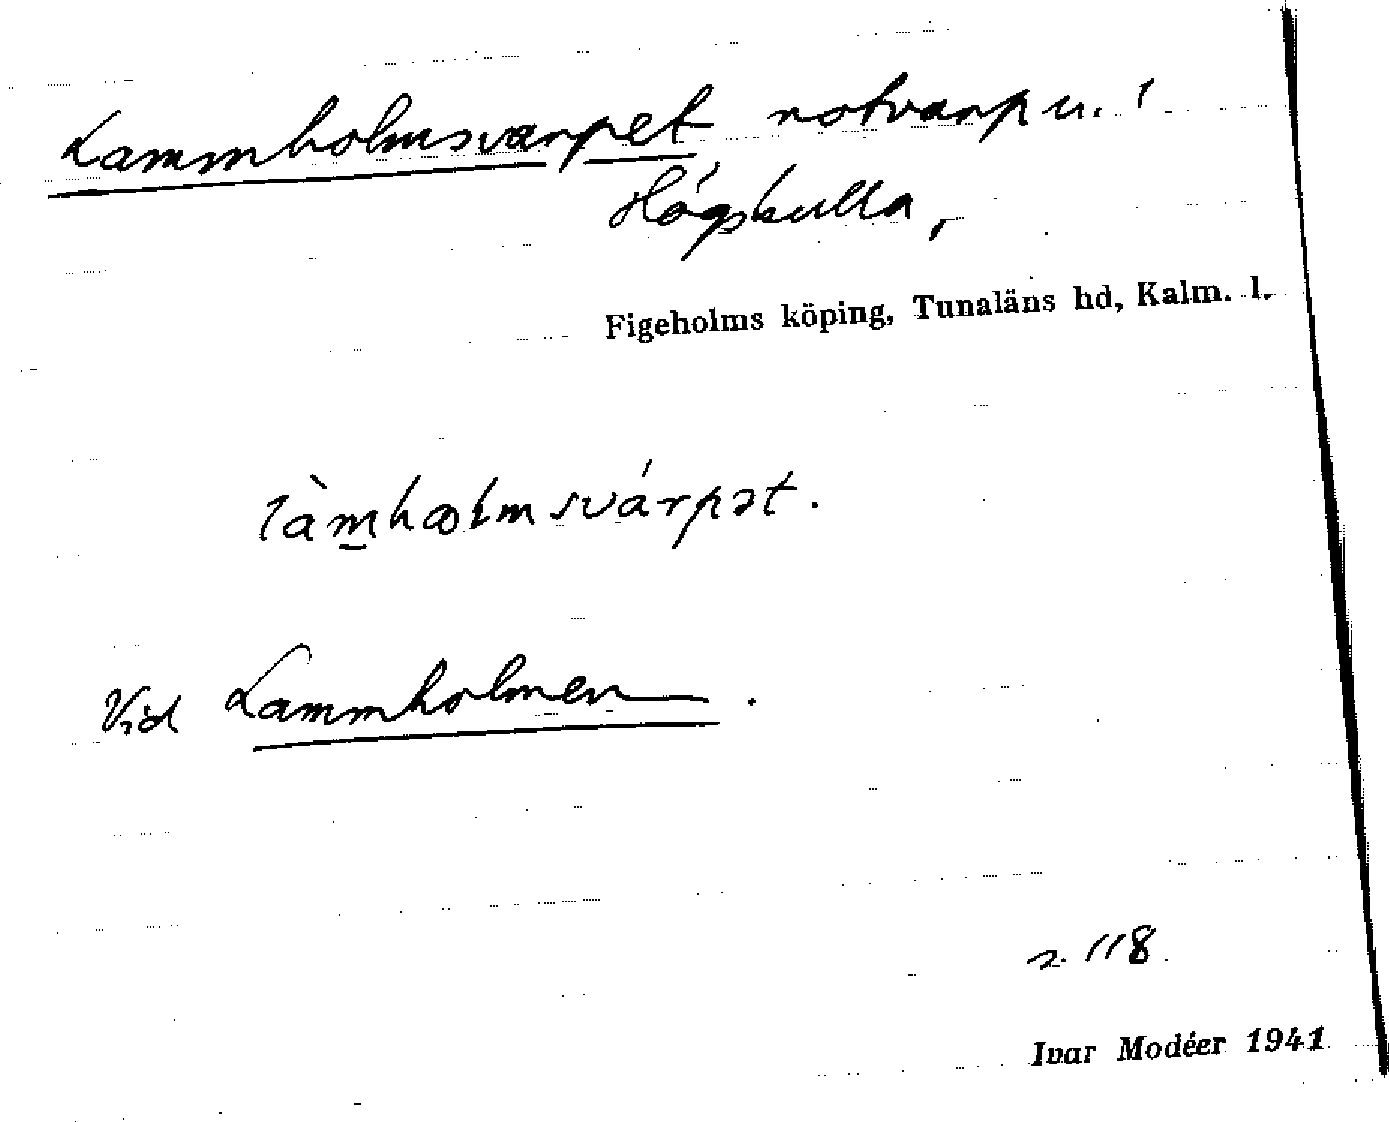 Lammholmsvarpet notvarp u.
Högskulla,
Figeholms köping, Tunaläns hd, Kalm. l.
làm̲hoolmsvárpət.
Vid Lammholmen.
n. 118.
Ivar Modéer 1941